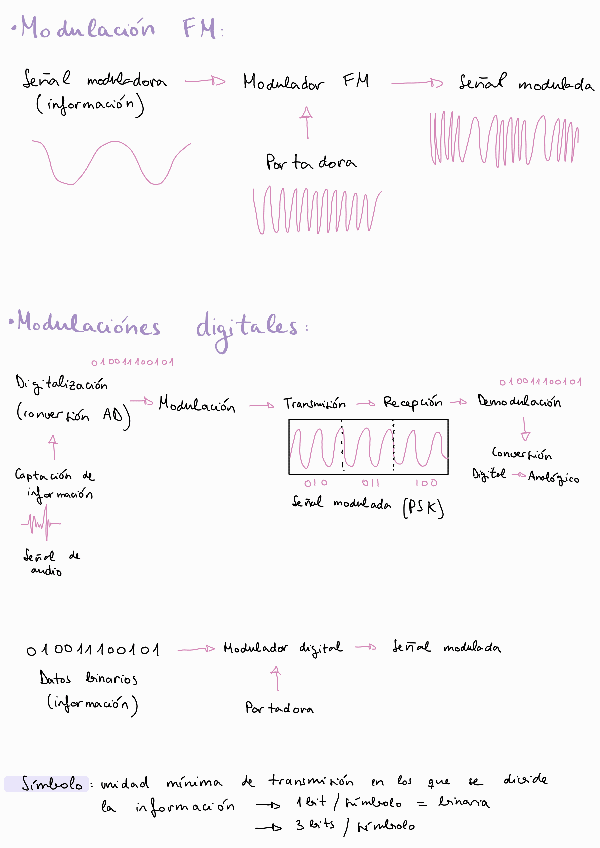 •Modulación FM:
Señal moduladora → Modulador FM → Señal modulada
(información)
Portadora
•Modulaciónes digitales:
010011100101
Digitalización
(conversión AD) → Modulación → Transmisión → Recepción → Demodulación
010011100101
010 011 100
Señal modulada (PSK)
Conversión
Digital → Analógico
Captación de
información
Señal de
audio
010011100101 → Modulador digital → Señal modulada
Datos binarios
(información)
Portadora
Símbolo: unidad mínima de transmisión en los que se divide
la información → 1 bit / símbolo = binaria
→ 3 bits / símbolo